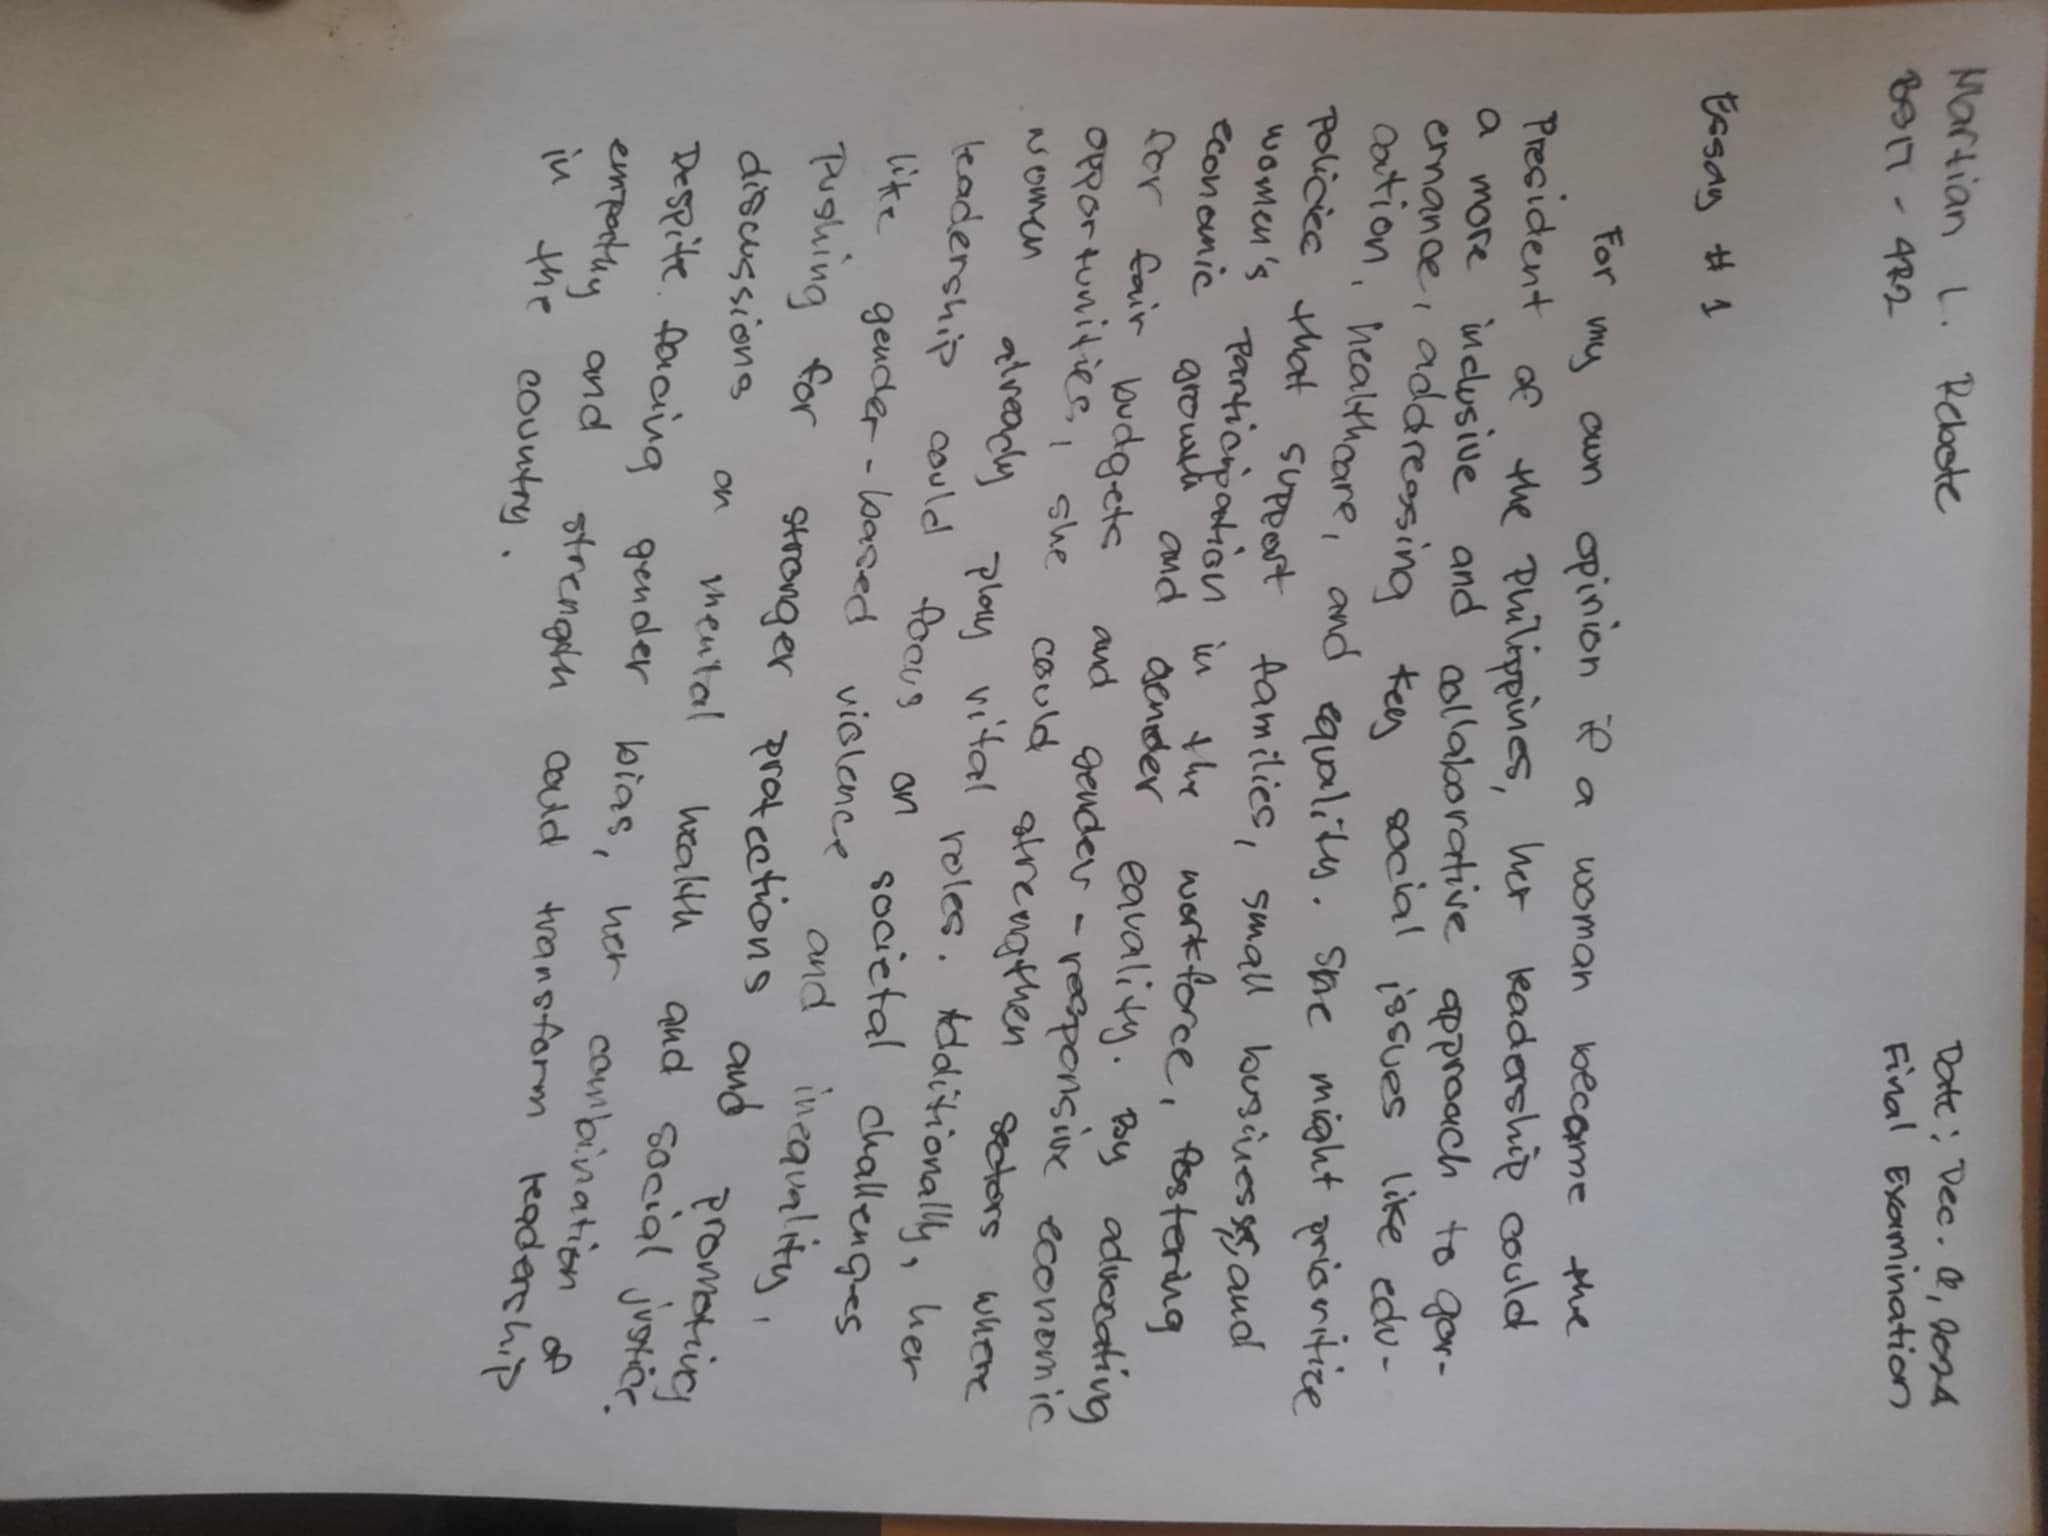 Martian L. Rebote
BSIT - 4R2
Date: Dec. 2024
Final Examination
Essay # 1
For my own opinion if a woman became the
President of the Philippines, her leadership could
a more inclusive and collaborative approach to gov-
ernance, addressing key social issues like edu-
cation, healthcare, and equality. She might prioritize
policies that support families, small businesses, and
women's participation in the workforce, fostering
economic growth and gender equality. By advocating
for fair budgets and gender-responsive economic
opportunities, she could strengthen sectors where
women already play vital roles. Additionally, her
leadership could focus on societal challenges
like gender-based violence and inequality,
Pushing for stronger protections and promoting
discussions on mental health and social justice.
Despite facing gender bias, her combination of
empathy and strength could transform leadership
in the country.